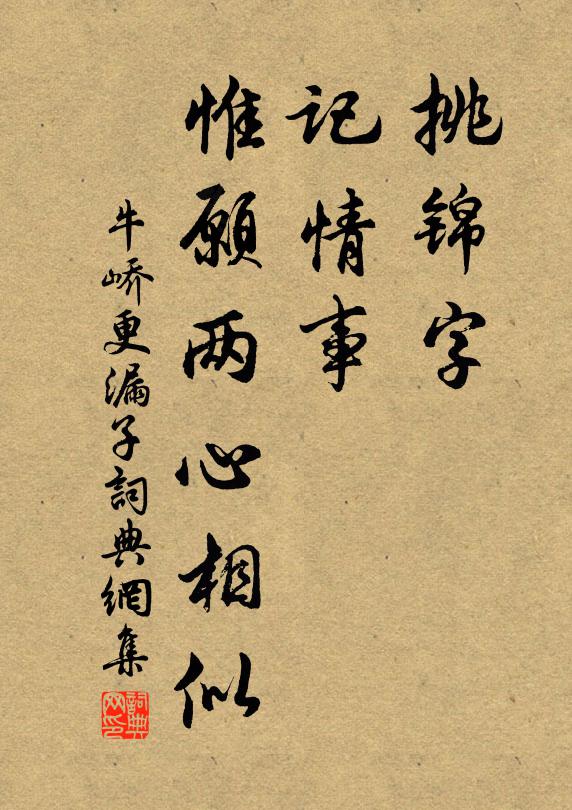 挑锦字
记情事
惟愿两心相似
牛峤更漏子詞典網集
詞典網印